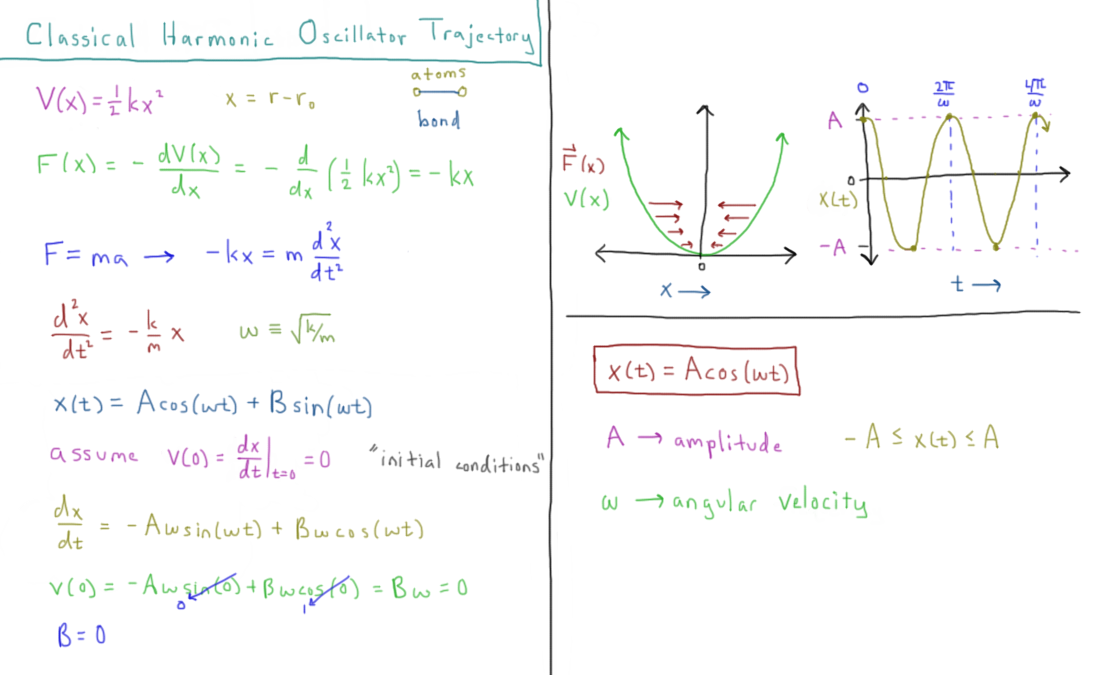 Classical Harmonic Oscillator Trajectory
V(x) = ½ kx²   x = r - r₀
atoms
bond
F(x) = - dV(x)/dx = - d/dx (½ kx²) = - kx
F = ma → -kx = m d²x/dt²
d²x/dt² = - k/m x   ω ≡ √k/m
x(t) = A cos(ωt) + B sin(ωt)
assume V(0) = dx/dt|t=0 = 0   "initial conditions"
dx/dt = - Aω sin(ωt) + Bω cos(ωt)
V(0) = - Aω sin(0) + Bω cos(0) = Bω = 0
0   1
B = 0
F⃗(x)
V(x)
0
x →
0   2π/ω   4π/ω
A
0
x(t)
-A
t →
x(t) = A cos(ωt)
A → amplitude   - A ≤ x(t) ≤ A
ω → angular velocity